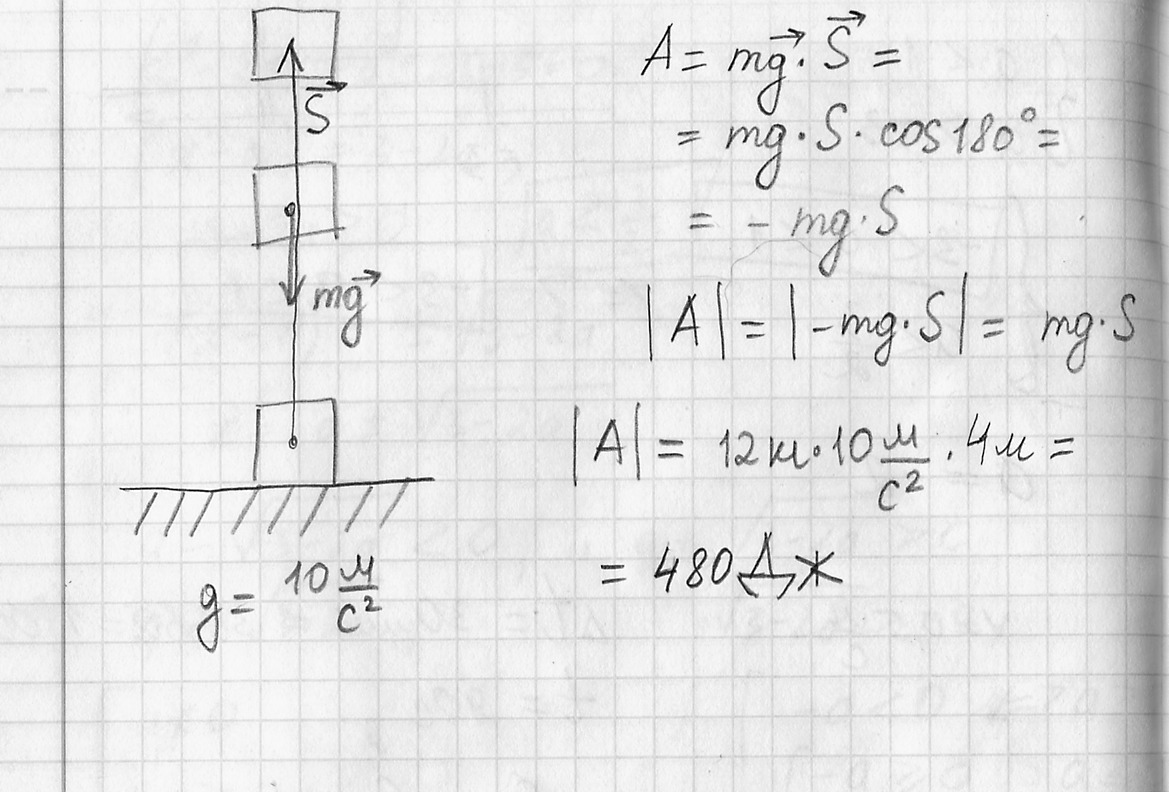 S⃗
mg⃗
g = 10 м/с²
A = mg⃗ · S⃗ =
= mg · S · cos 180° =
= - mg · S
|A| = |-mg · S| = mg · S
|A| = 12 кг · 10 м/с² · 4 м =
= 480 Дж